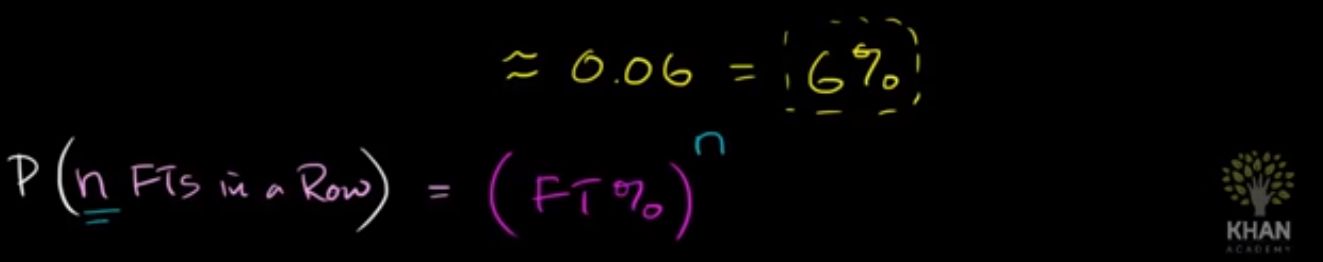 ≈ 0.06 = 6%
P(n FTs in a Row) = (FT%)ⁿ
KHAN
ACADEMY